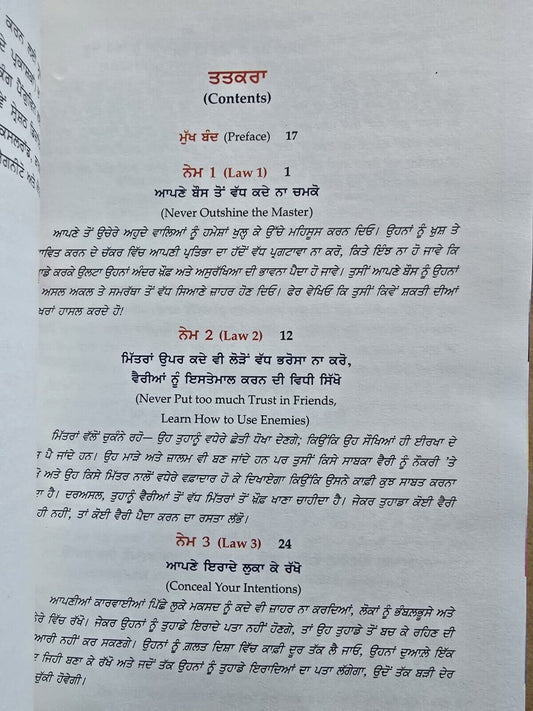 ਕਰਨ ਲਈ
ਦੇ ਪ੍ਰਕਾਸ਼ਕ
ਤਤਕਰਾ
(Contents)
ਮੁੱਖ ਬੰਦ (Preface) 17
ਨੇਮ 1 (Law 1) 1
ਆਪਣੇ ਬੌਸ ਤੋਂ ਵੱਧ ਕਦੇ ਨਾ ਚਮਕੋ
(Never Outshine the Master)
ਆਪਣੇ ਤੋਂ ਉਚੇਰੇ ਅਹੁਦੇ ਵਾਲਿਆਂ ਨੂੰ ਹਮੇਸ਼ਾਂ ਖੁਲ੍ਹ ਕੇ ਉੱਚੇ ਮਹਿਸੂਸ ਕਰਨ ਦਿਓ। ਉਹਨਾਂ ਨੂੰ ਖ਼ੁਸ਼ ਤੇ
ਕਰਨ ਦੇ ਚੱਕਰ ਵਿੱਚ ਆਪਣੀ ਪ੍ਰਤਿਭਾ ਦਾ ਹੱਦੋਂ ਵੱਧ ਪ੍ਰਗਟਾਵਾ ਨਾ ਕਰੋ, ਕਿਤੇ ਇੰਝ ਨਾ ਹੋ ਜਾਵੇ ਕਿ
ਕਰਕੇ ਉਲਟਾ ਉਹਨਾਂ ਅੰਦਰ ਖੌਫ਼ ਅਤੇ ਅਸੁਰੱਖਿਆ ਦੀ ਭਾਵਨਾ ਪੈਦਾ ਹੋ ਜਾਵੇ। ਤੁਸੀਂ ਆਪਣੇ ਬੌਸ ਨੂੰ ਉਹਨਾਂ
ਅਸਲ ਅਕਲ ਤੇ ਸਮਰੱਥਾ ਤੋਂ ਵੱਧ ਸਿਆਣੇ ਜ਼ਾਹਰ ਹੋਣ ਦਿਓ। ਫੇਰ ਵੇਖਿਓ ਕਿ ਤੁਸੀਂ ਕਿਵੇਂ ਸ਼ਕਤੀ ਦੀਆਂ
ਹਾਸਲ ਕਰਦੇ ਹੋ!
ਨੇਮ 2 (Law 2) 12
ਮਿੱਤਰਾਂ ਉਪਰ ਕਦੇ ਵੀ ਲੋੜੋਂ ਵੱਧ ਭਰੋਸਾ ਨਾ ਕਰੋ,
ਵੈਰੀਆਂ ਨੂੰ ਇਸਤੇਮਾਲ ਕਰਨ ਦੀ ਵਿਧੀ ਸਿੱਖੋ
(Never Put too much Trust in Friends,
Learn How to Use Enemies)
ਮਿੱਤਰਾਂ ਵੱਲੋਂ ਚੁਕੰਨੇ ਰਹੋ— ਉਹ ਤੁਹਾਨੂੰ ਵਧੇਰੇ ਛੇਤੀ ਧੋਖਾ ਦੇਣਗੇ; ਕਿਉਂਕਿ ਉਹ ਸੌਖਿਆਂ ਹੀ ਈਰਖਾ ਦੇ
ਪੈ ਜਾਂਦੇ ਹਨ। ਉਹ ਮਾੜੇ ਅਤੇ ਜ਼ਾਲਮ ਵੀ ਬਣ ਜਾਂਦੇ ਹਨ ਪਰ ਤੁਸੀਂ ਕਿਸੇ ਸਾਬਕਾ ਵੈਰੀ ਨੂੰ ਨੌਕਰੀ 'ਤੇ
ਅਤੇ ਉਹ ਕਿਸੇ ਮਿੱਤਰ ਨਾਲੋਂ ਵਧੇਰੇ ਵਫ਼ਾਦਾਰ ਹੋ ਕੇ ਦਿਖਾਏਗਾ ਕਿਉਂਕਿ ਉਸਨੇ ਕਾਫ਼ੀ ਕੁਝ ਸਾਬਤ ਕਰਨਾ
ਹੈ। ਦਰਅਸਲ, ਤੁਹਾਨੂੰ ਵੈਰੀਆਂ ਤੋਂ ਵੱਧ ਮਿੱਤਰਾਂ ਤੋਂ ਖੌਫ਼ ਖਾਣਾ ਚਾਹੀਦਾ ਹੈ। ਜੇਕਰ ਤੁਹਾਡਾ ਕੋਈ ਵੈਰੀ
ਹੀ ਨਹੀਂ, ਤਾਂ ਕੋਈ ਵੈਰੀ ਪੈਦਾ ਕਰਨ ਦਾ ਰਸਤਾ ਲੱਭੋ।
ਨੇਮ 3 (Law 3) 24
ਆਪਣੇ ਇਰਾਦੇ ਲੁਕਾ ਕੇ ਰੱਖੋ
(Conceal Your Intentions)
ਆਪਣੀਆਂ ਕਾਰਵਾਈਆਂ ਪਿੱਛੇ ਲੁਕੇ ਮਕਸਦ ਨੂੰ ਕਦੇ ਵੀ ਜ਼ਾਹਰ ਨਾ ਕਰਦਿਆਂ, ਲੋਕਾਂ ਨੂੰ ਭੰਬਲਭੂਸੇ ਅਤੇ
ਵਿੱਚ ਰੱਖੋ। ਜੇਕਰ ਉਹਨਾਂ ਨੂੰ ਤੁਹਾਡੇ ਇਰਾਦੇ ਪਤਾ ਨਹੀਂ ਹੋਣਗੇ, ਤਾਂ ਉਹ ਤੁਹਾਡੇ ਤੋਂ ਬਚ ਕੇ ਰਹਿਣ ਦੀ
ਨਹੀਂ ਕਰ ਸਕਣਗੇ। ਉਹਨਾਂ ਨੂੰ ਗ਼ਲਤ ਦਿਸ਼ਾ ਵਿੱਚ ਕਾਫ਼ੀ ਦੂਰ ਤੱਕ ਲੈ ਜਾਓ, ਉਹਨਾਂ ਦੁਆਲੇ ਇੱਕ
ਜਿਹੀ ਬਣਾ ਕੇ ਰੱਖੋ ਅਤੇ ਜਦੋਂ ਤੱਕ ਉਹਨਾਂ ਨੂੰ ਤੁਹਾਡੇ ਇਰਾਦਿਆਂ ਦਾ ਪਤਾ ਲੱਗੇਗਾ, ਉਦੋਂ ਤੱਕ ਬੜੀ ਦੇਰ
ਚੁੱਕੀ ਹੋਵੇਗੀ।